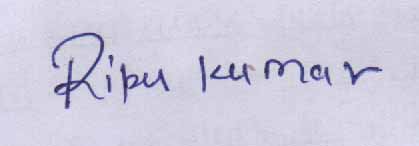 Ripu Kumar